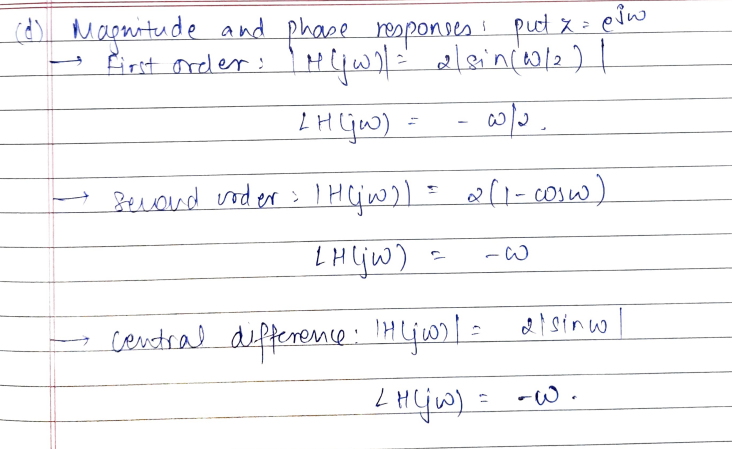 (d) Magnitude and phase responses : put z = e^jω
→ First order : |H(jω)| = 2|sin(ω/2)|
∠H(jω) = - ω/2.
→ Second order : |H(jω)| = 2(1-cosω)
∠H(jω) = -ω
→ Central difference : |H(jω)| = 2|sinω|
∠H(jω) = -ω.